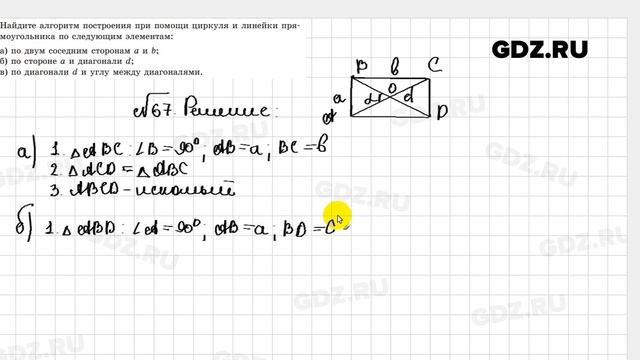 Найдите алгоритм построения при помощи циркуля и линейки пря-
моугольника по следующим элементам:
а) по двум соседним сторонам a и b;
б) по стороне a и диагонали d;
в) по диагонали d и углу между диагоналями.
GDZ.RU
B b C
a α O d
A D
№67. Решение:
а) 1. △ABC: ∠B=90°; AB=a; BC=b
2. △ACD = △ABC
3. ABCD - искомый
б) 1. △ABD: ∠A=90°; AB=a; BD=C